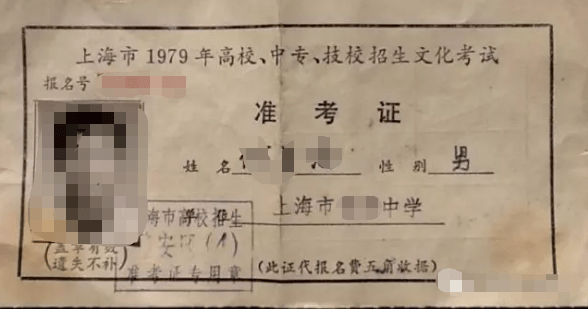 上海市1979年高校、中专、技校招生文化考试
报名号
准考证
姓名 性别 男
上海市 中学
海市高校招生
安 (1)
准考证专用章
(盖章有效
遗失不补)
(此证代报名费五角收据)